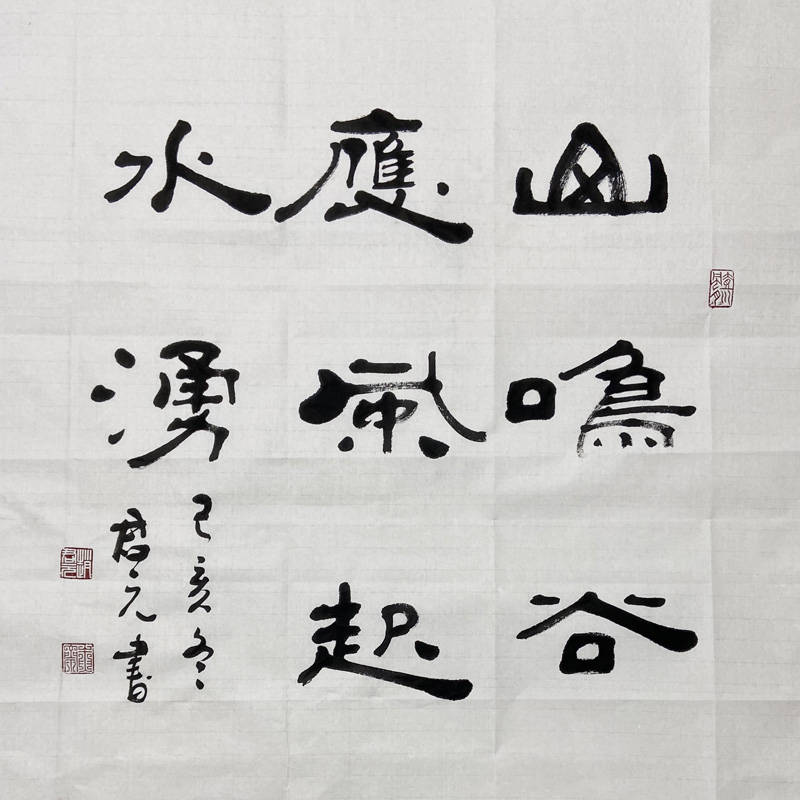 山鳴谷
應風起
水湧
己亥冬
君元書